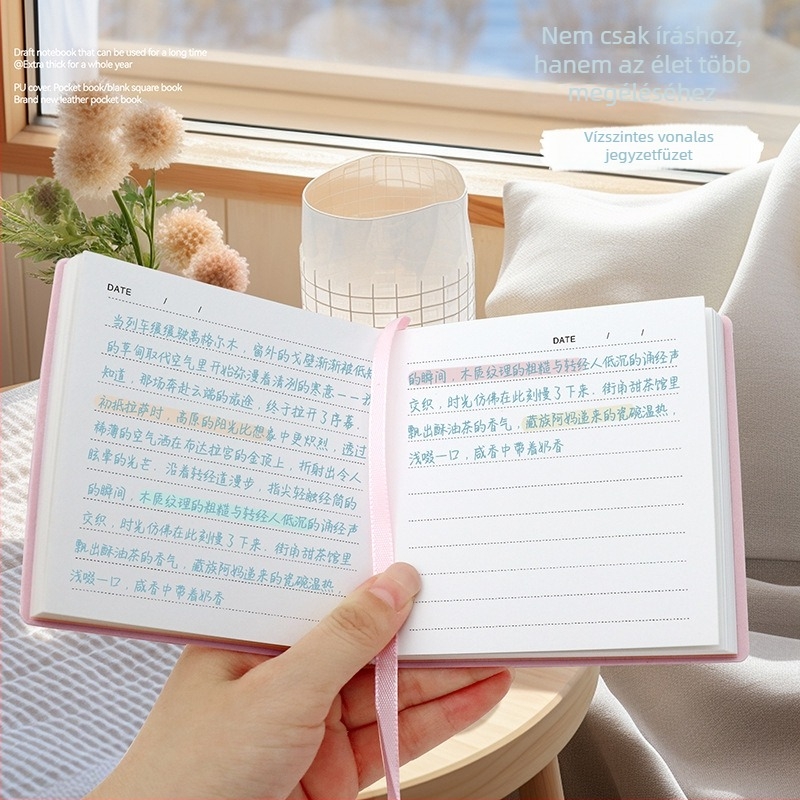 Draft notebook that can be used for a long time
@Extra thick for a whole year
PU cover. Pocket book/blank square book
Brand new leather pocket book.
Nem csak íráshoz,
hanem az élet több
megéléséhez
Vízszintes vonalas
jegyzetfüzet
DATE / /
当列车缓缓驶离格尔木，窗外的戈壁渐渐被低矮
的草甸取代空气里开始弥漫着清冽的寒意——我
知道，那场奔赴云端的旅途，终于拉开了序幕．
初抵拉萨时，高原的阳光比想象中更炽烈，透过
稀薄的空气洒在布达拉宫的金顶上，折射出令人
眩晕的光芒．沿着转经道漫步，指尖轻触经筒的
的瞬间，木质纹理的粗糙与转经人低沉的诵经声
交织，时光仿佛在此刻慢了下来．街角甜茶馆里
飘出酥油茶的香气，藏族阿妈递来的瓷碗温热
浅啜一口，咸香中带着奶香
DATE / /
的瞬间，木质纹理的粗糙与转经人低沉的诵经声
交织，时光仿佛在此刻慢了下来．街角甜茶馆里
飘出酥油茶的香气，藏族阿妈递来的瓷碗温热，
浅啜一口，咸香中带着奶香